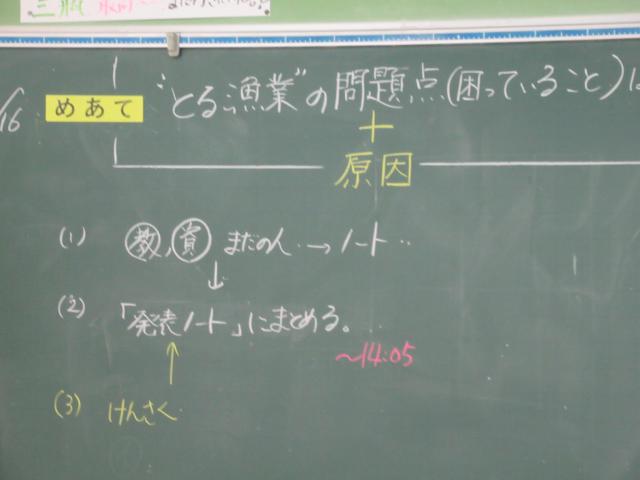 /16 めあて "とる漁業"の問題点(困っていること)は
+
原因
(1) 教, 資 まだの人 → ノート..
↓
(2) 「発表ノート」にまとめる。
~14:05
↑
(3) けんさく